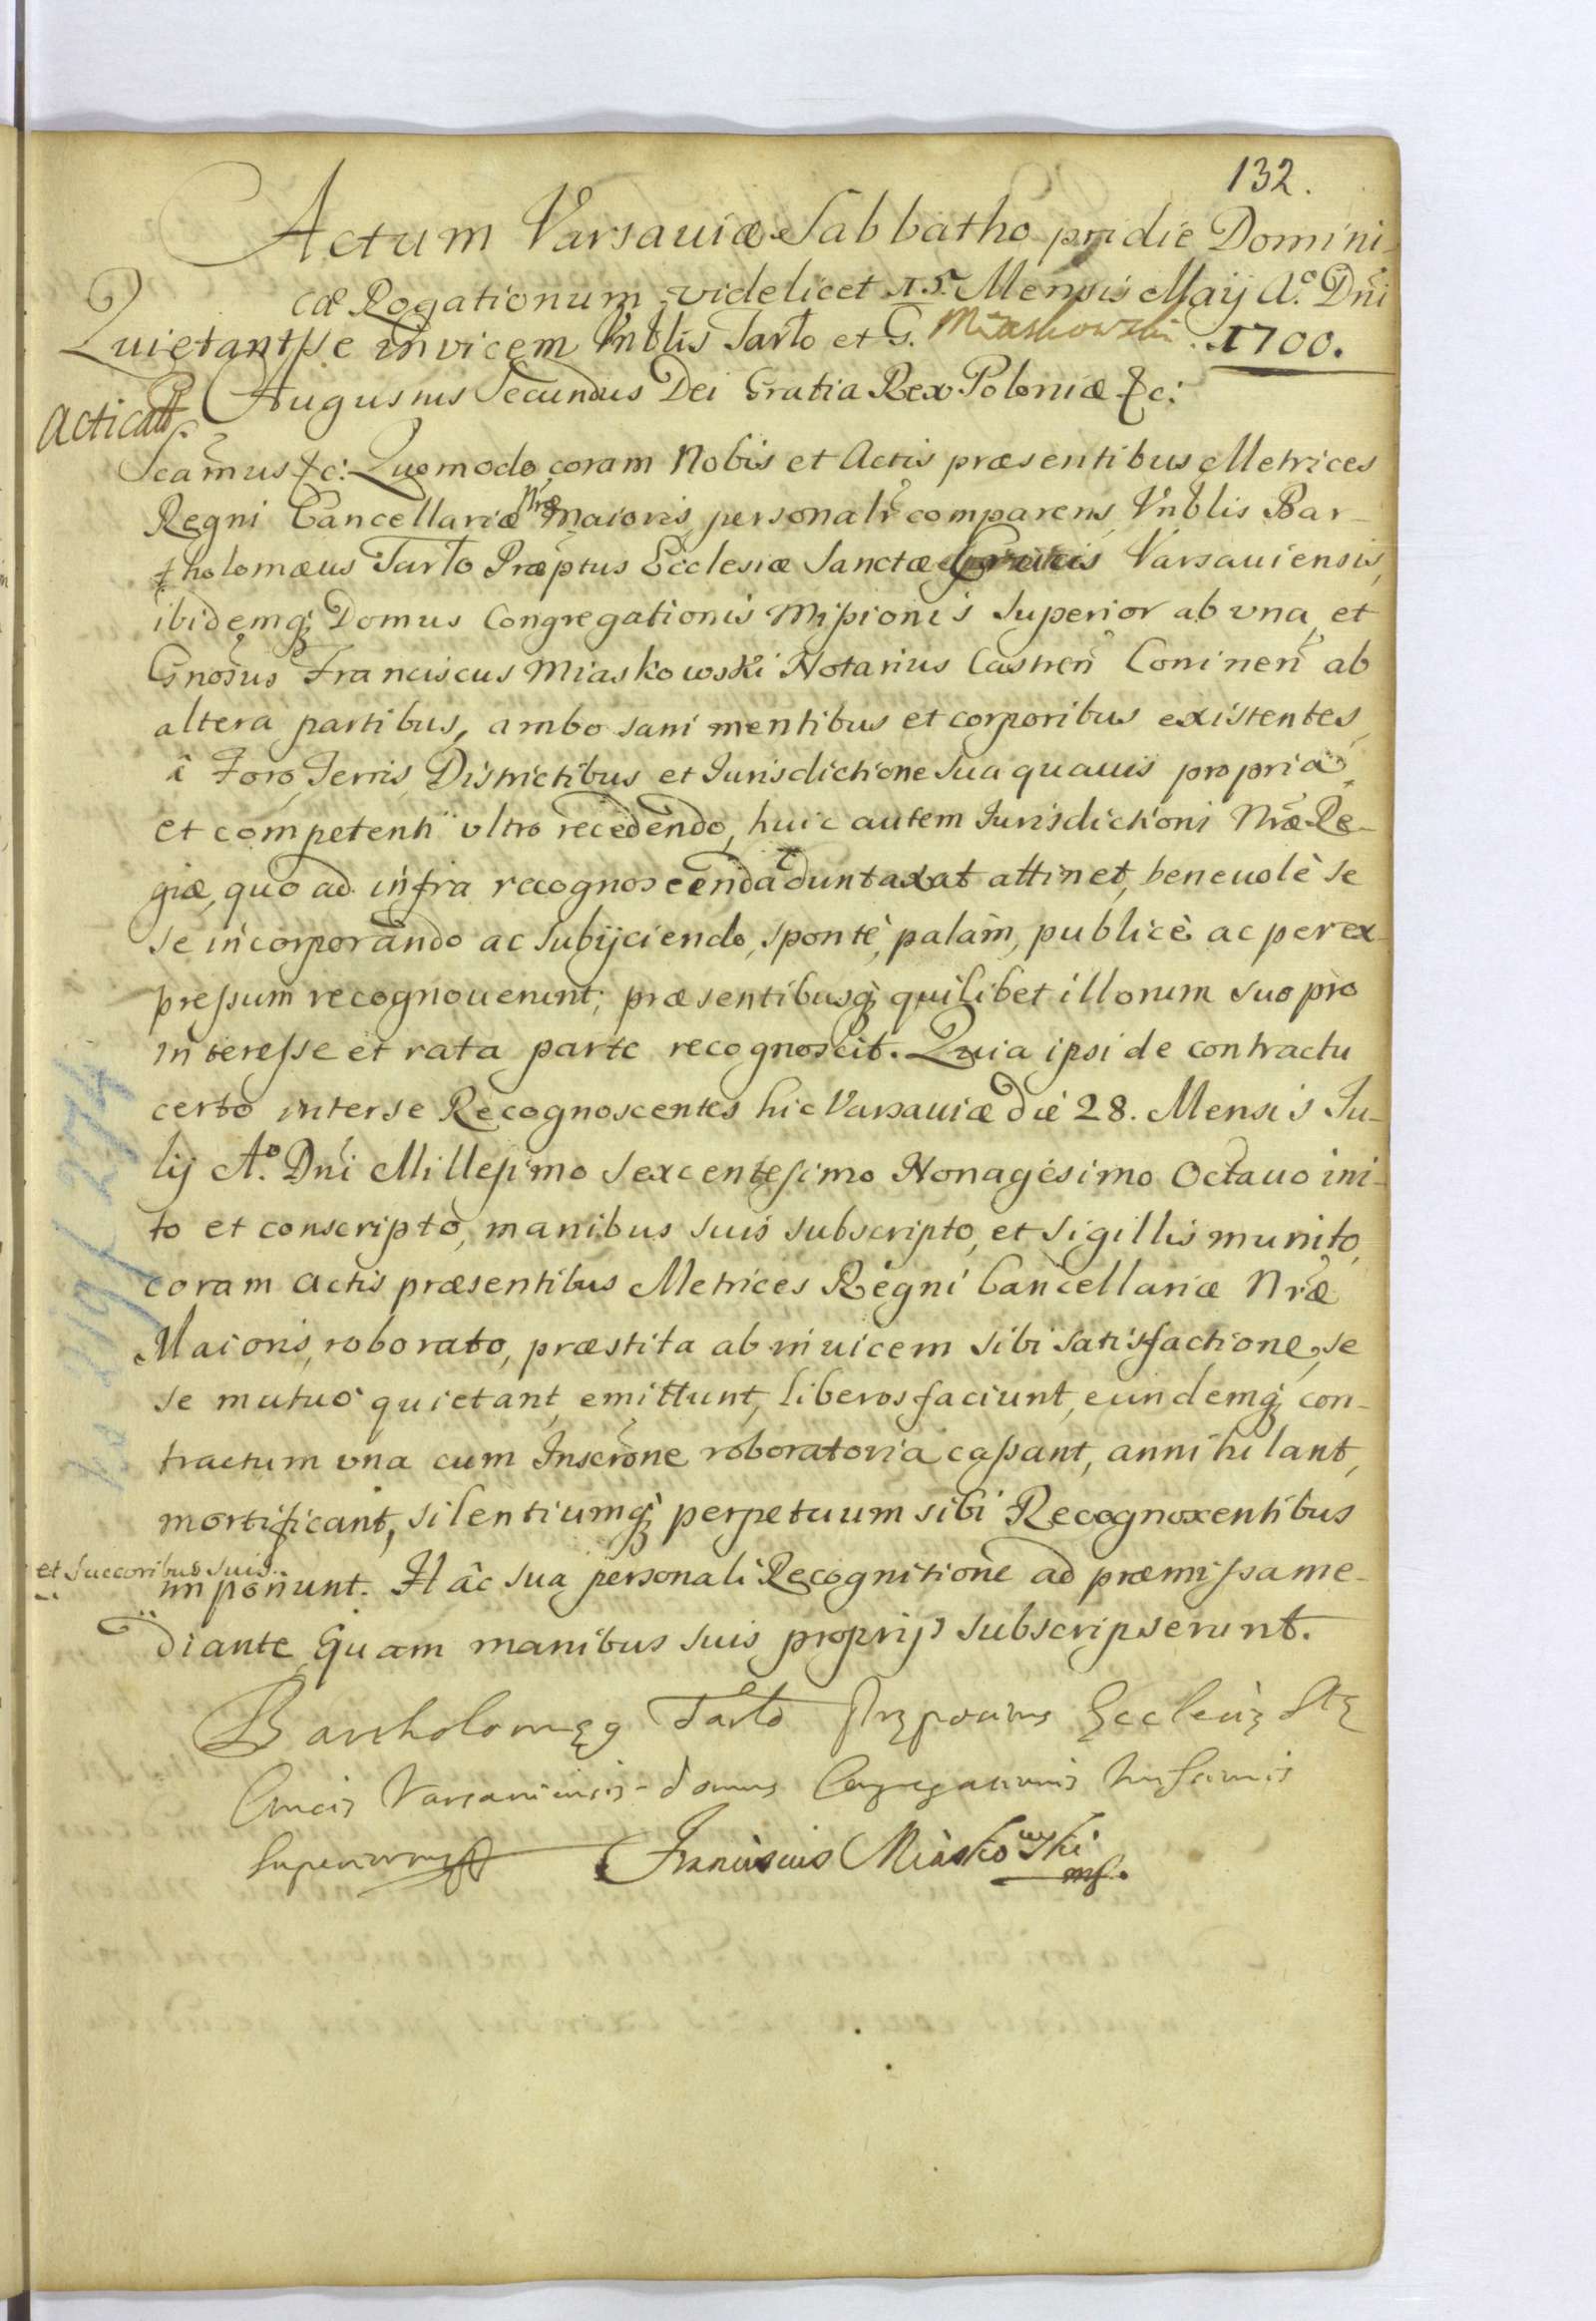 132.
Actum Varsauiæ Sabbatho pridie Domini-
cæ Rogationum, videlicet 15. Mensis Maÿ A.º Dñi
Quietant se invicem Vnblis Tarło et G. Miaskowski. 1700.
Augustus Secundus Dei Gratia Rex Poloniæ &c:
acticat̃
Scam̃us &c: Quomodo coram Nobis et Actis præsentibus Metrices
Regni Cancellariæ Nr̃æ Maioris personalr̃ comparens Vnblis Bar-
tholomæus Tarło Præptus Ecclesiæ Sanctæ Crucis Varsauiensis,
ibidemq; Domus Congregationis Mißionis Superior ab vna, et
Gnosus Franciscus Miaskowski Notarius Castren̄ Coninen̄ ab
altera partibus, ambo sani mentibus et corporibus existentes,
â Foro, Terris Districtibus et Iurisdictione sua quauis propria
et competenti vltro recedendo, huic autem Iurisdictioni Nr̃æ Re-
giæ, quo ad infra recognoscenda duntaxat attinet, beneuolè se
se incorporando ac subijciendo, spontè, palàm, publicè ac per ex-
preßum recognouerunt; præsentibusq; quilibet illorum suo pro
interesse et rata parte recognoscit. Quia ipsi de contractu
certo inter se Recognoscentes hic Varsauiæ die 28. Mensis Iu-
lij A.º Dñi Millesimo Sexcentesimo Nonagesimo Octauo ini-
to et conscripto, manibus suis subscripto, et sigillis munito,
coram actis præsentibus Metrices Regni Cancellariæ Nr̃æ
Maioris, roborato, præstita ab inuicem sibi satisfactione, se
se mutuo quietant, emittunt, liberos faciunt, eundemq; con-
tractum vna cum Inscrõne roboratoria caßant, annihilant,
mortificant, silentiumq; perpetuum sibi Recognoscentibus
et succoribus suis
imponunt. Hâc sua personali Recognitione ad præmissa me-
diante Quam manibus suis proprijs subscripserunt.
Bartholomęg Tarło Pręposituus Ecclesię Stę
Crucis Varsauiensis domus Congregationis Missionis
Superior mp
Franciscus Miaskowski
mp.